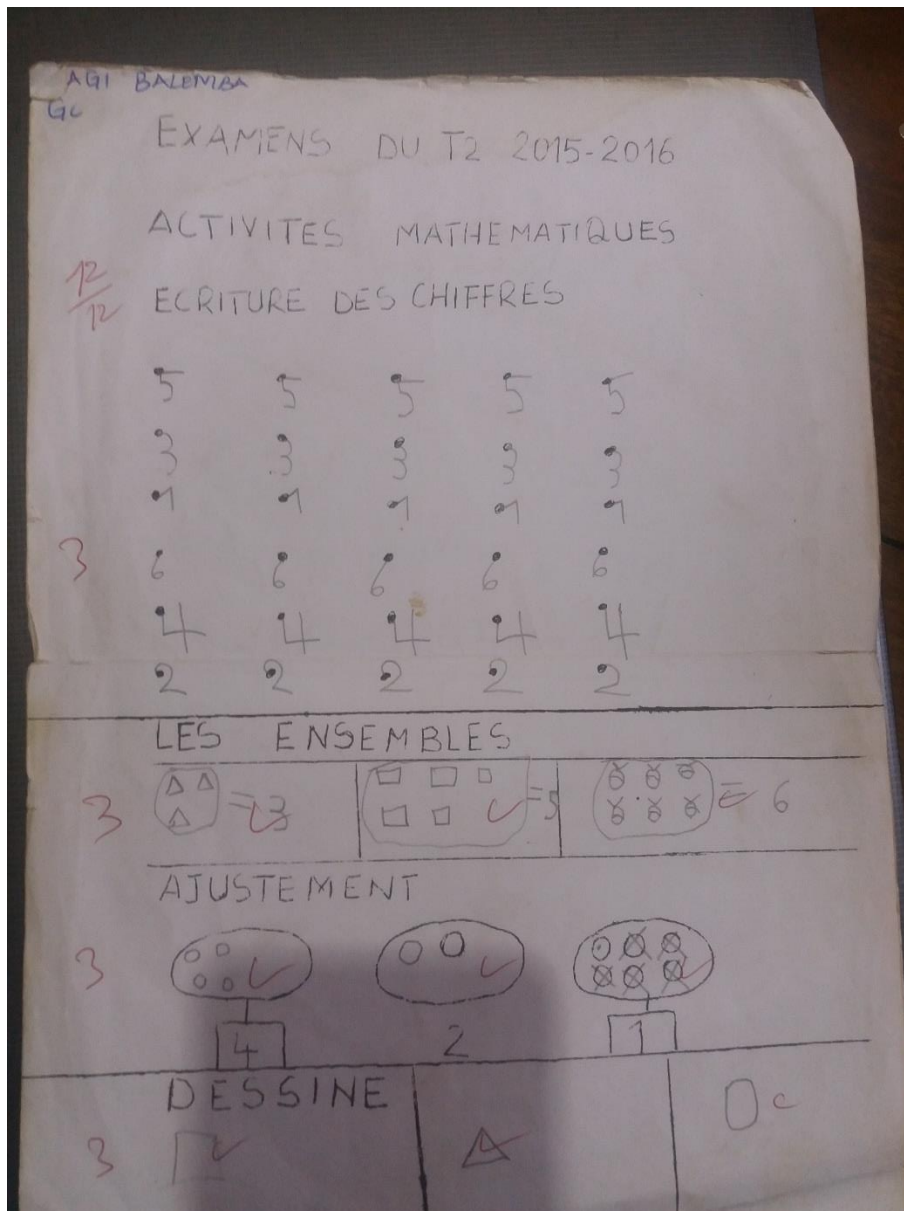 AGI BALEMBA
Gc
EXAMENS DU T2 2015-2016
ACTIVITES MATHEMATIQUES
12/12 ECRITURE DES CHIFFRES
5 5 5 5 5
3 3 3 3 3
1 1 1 1 1
3 6 6 6 6 6
4 4 4 4 4
2 2 2 2 2
LES ENSEMBLES
3 = 3 = 5 = 6
AJUSTEMENT
3
4 2 1
DESSINE
3